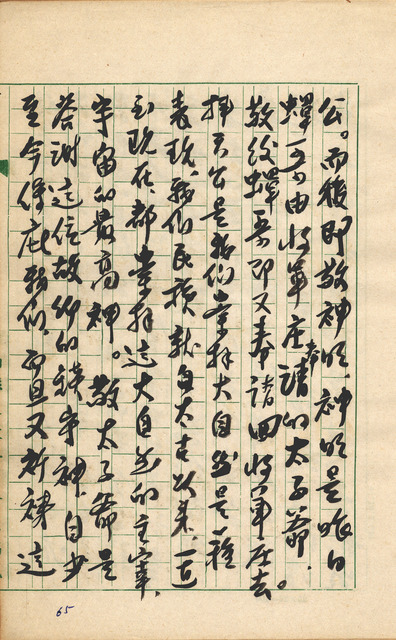 公。而後即敬神明。神明是昨日
蟬一五由將軍庄奉請的太子爺,
敬後蟬要即又奉請回將軍庄去。
拜天公是我們崇拜大自然是一種
表現。我們民族就自太古以來一直
到現在,都崇拜這大自然的主宰,
宇宙的最高神。敬太子爺是
答謝這位故鄉的護守神,自少
至今保庇我們,而且又祈禱這
65